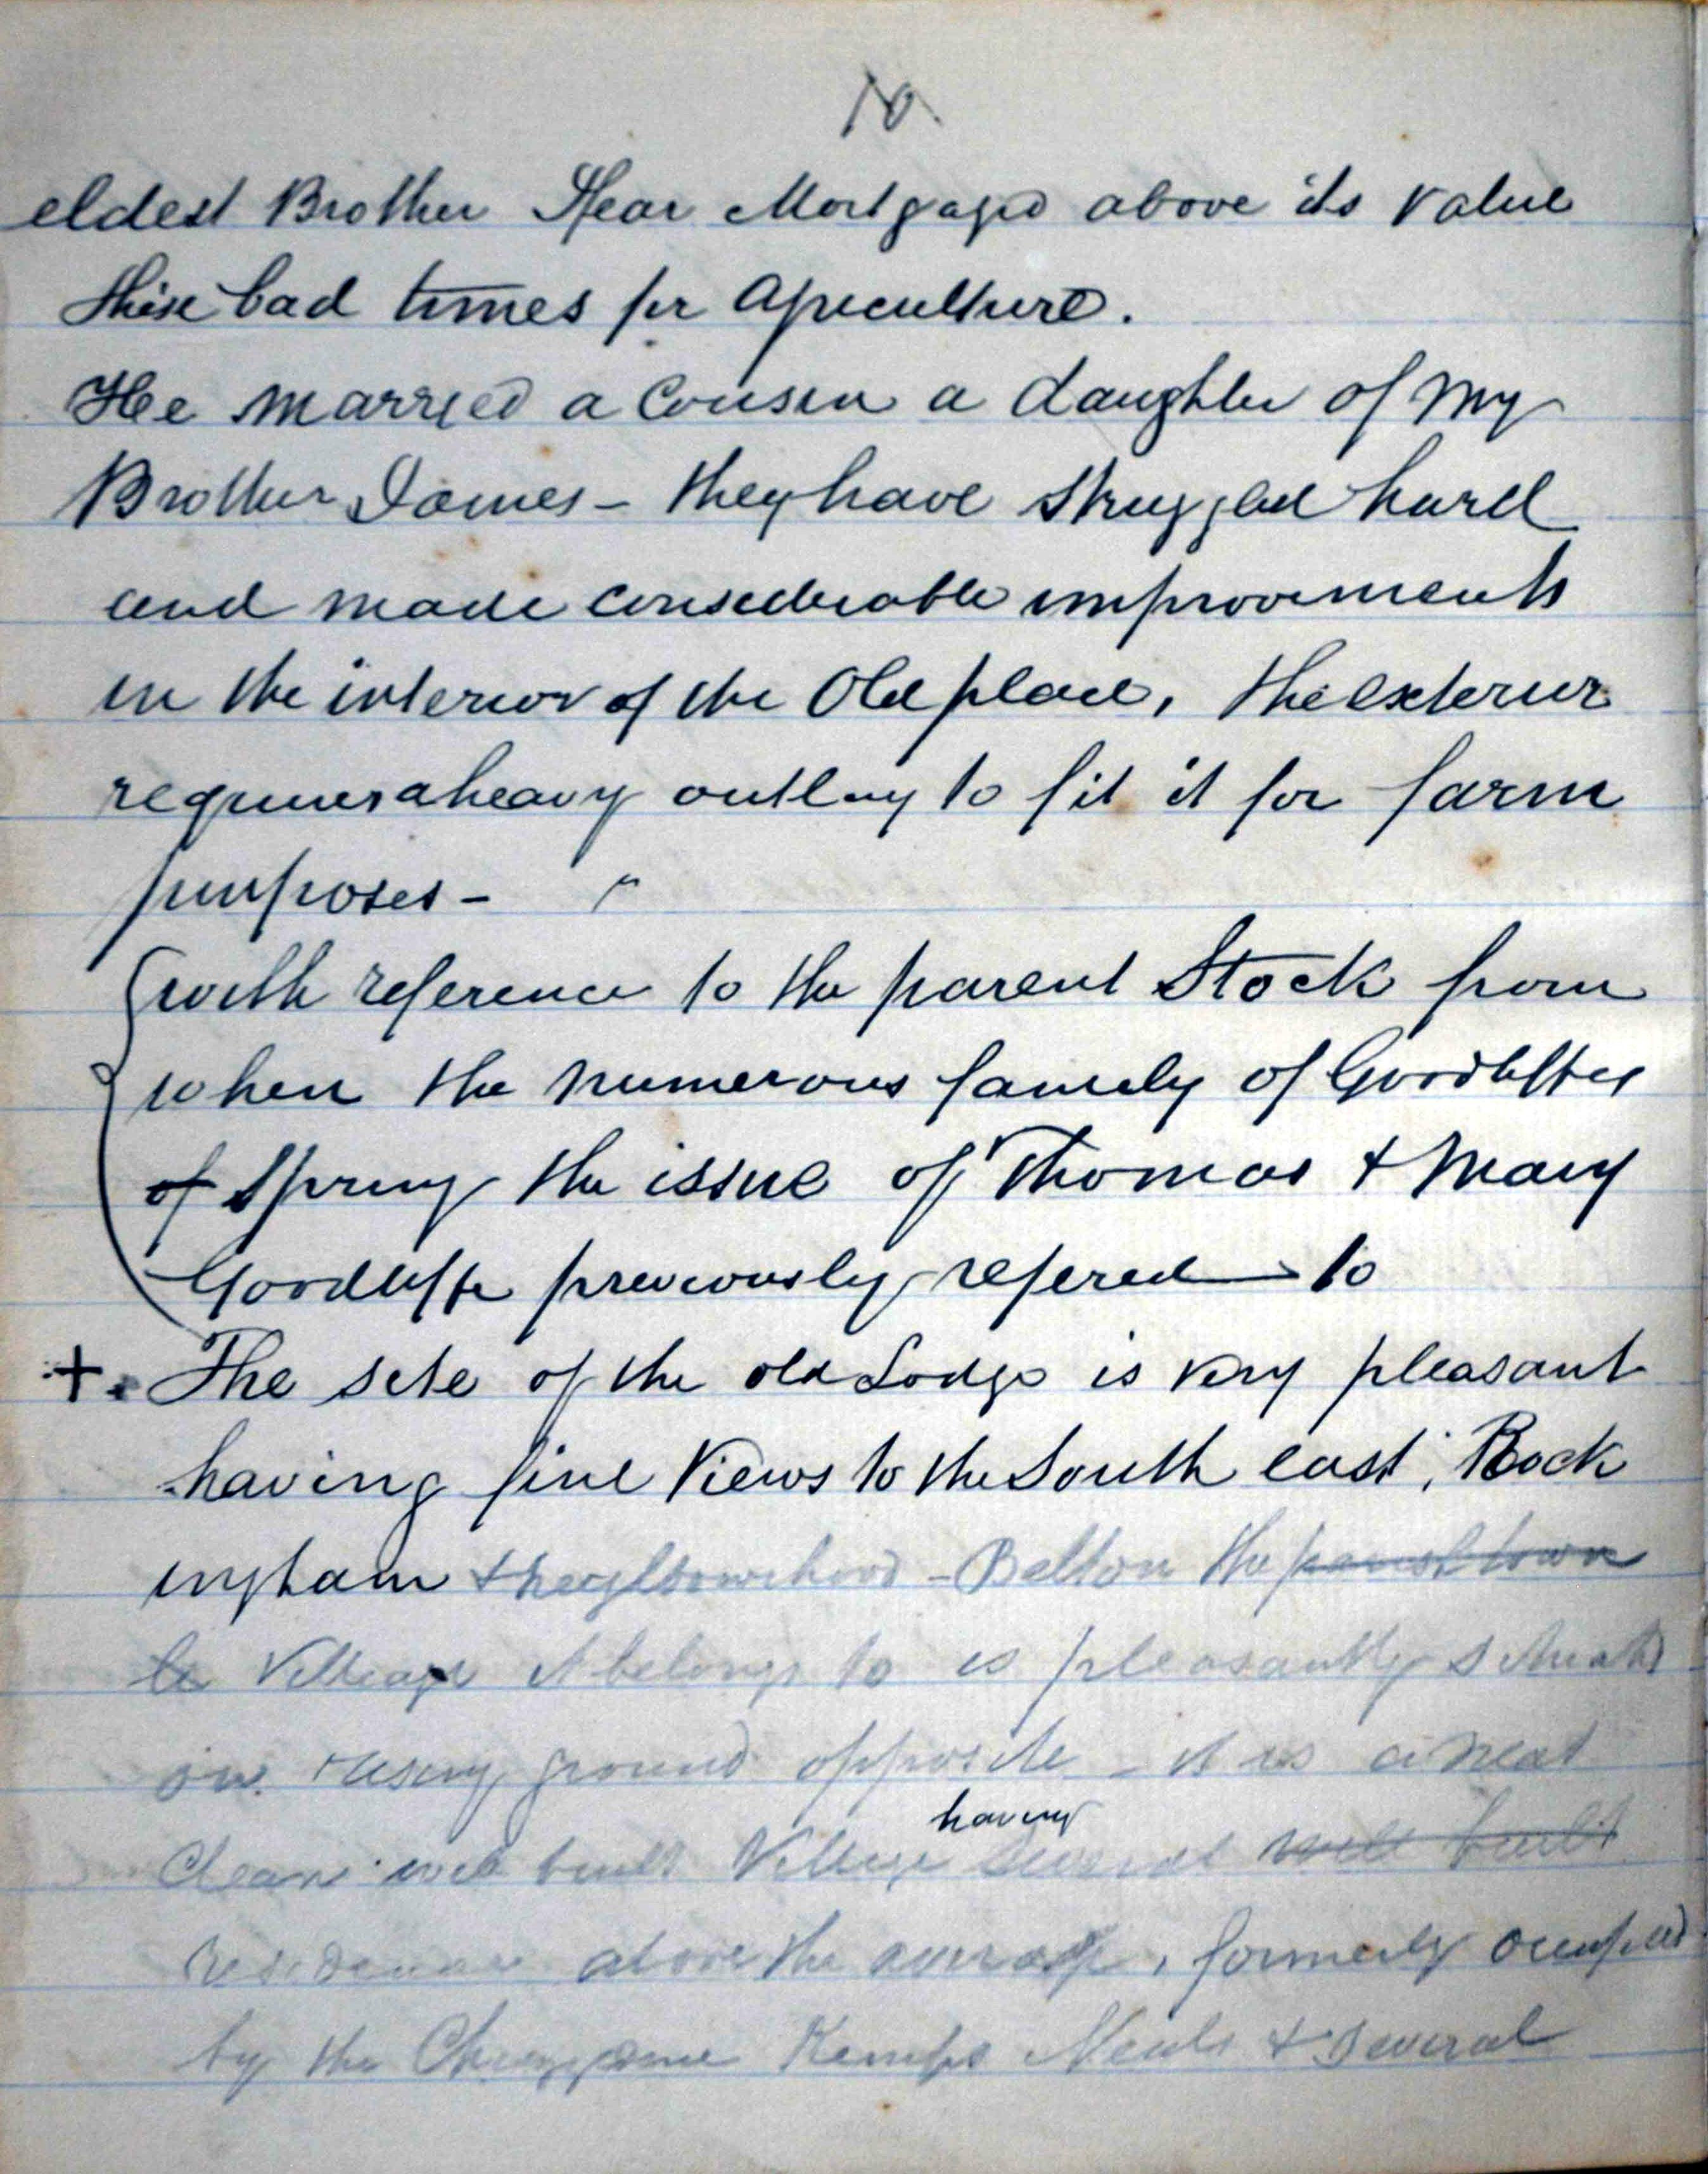 10
eldest Brother I fear Mortgaged above its value
these bad times for Agreculture.
He married a Cousin a daughter of My
Brother James - they have Struggled hard
and made considerable improvements
in the interior of the Old place, the exterior
requires a heavy outlay to fit it for farm
purposes -
with reference to the parent Stock from
when the numerous family of Goodliffes
of Spring the issue of Thomas + Mary
Goodliffe previously refered to
+ The site of the old Lodge is very pleasant
having fine Views to the South east, Rock
ingham + neighbourhood - Belton the parish town
Village it belongs to is pleasantly situate
on rising ground opposite - it is a neat
having
Clean well built Village several well built
residences above the average, formerly occupied
by the Kemps Neals + several